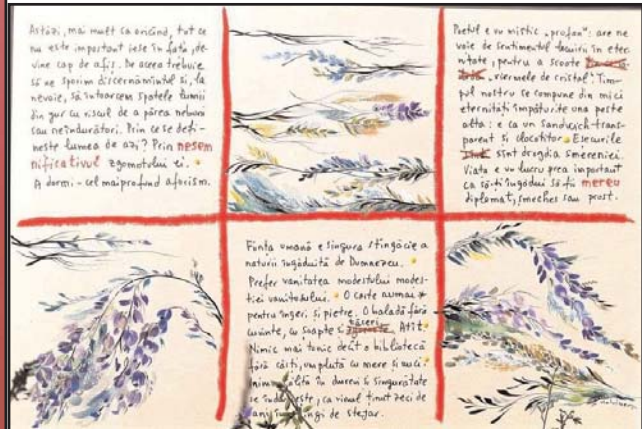 Astăzi, mai mult ca oricînd, tot ce
nu este important iese în față, de-
vine cap de afiș. De aceea trebuie
să ne sporim discernămîntul și, la
nevoie, să întoarcem spatele lumii
din jur cu riscul de a părea nebuni
sau neîndurători. Prin ce se defi-
nește lumea de azi? Prin nesem
nificativul zgomotului ei.
A dormi - cel mai profund aforism.
Poetul e un mistic „profan": are ne
voie de sentimentul locuirii în eter-
nitate, pentru a scoate
„viermele de cristal". Tim-
pul nostru se compune din mici
eternități împăturite una peste
alta: e ca un sandwich trans-
parent și clocotitor. Eșecurile
sînt drojdia smereniei.
Viața e un lucru prea important
ca să-ți îngădui să fii mereu
diplomat, șmecher sau prost.
Ființa umană e singura stîngăcie a
naturii îngăduită de Dumnezeu.
Prefer vanitatea modestului modes-
tiei vanitosului. O carte numai
pentru îngeri și pietre. O baladă fără
cuvinte, cu șoapte și tăceri. Atît.
Nimic mai tonic decît o bibliotecă
fără cărți, umplută cu mere și nuci.
Inima călită în dureri și singurătate
se îndulcește, ca vinul ținut zeci de
ani în de stejar.